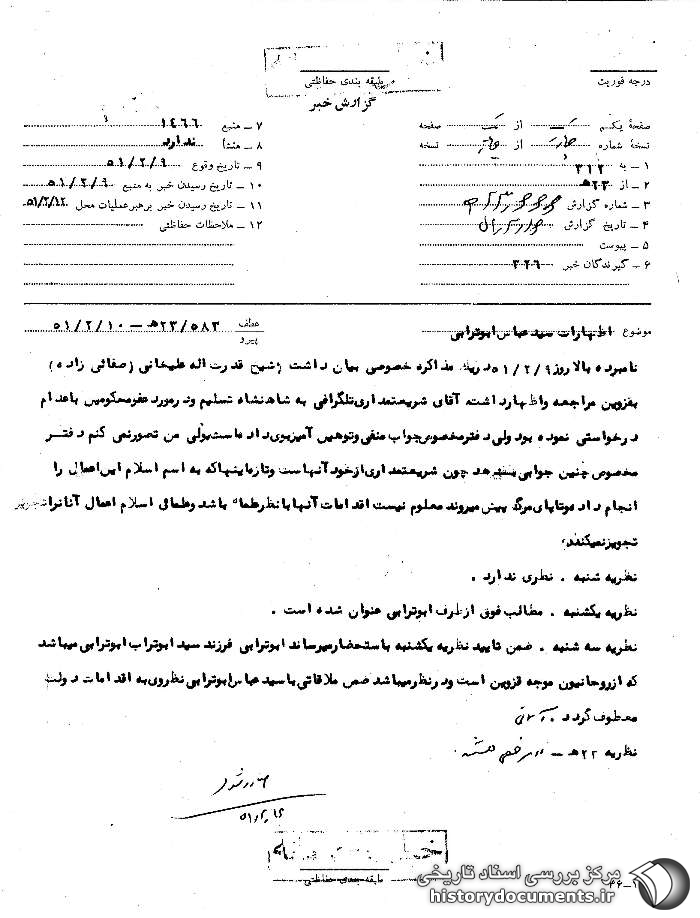 درجه فوریت
طبقه بندی حفاظتی
گزارش خبر
صفحهٔ یکم یک از یک صفحه
نسخهٔ شماره از نسخه
۱ – به ۳۱۲
۲ – از ۲۳ﻫ
۳ – شماره گزارش
۴ – تاریخ گزارش
۵ – پیوست
۶ – گیرندگان خبر ۳۲۶
۷ – منبع ۱۴۶۶
۸ – منشأ ندارد
۹ – تاریخ وقوع ۵۱/۲/۹
۱۰ – تاریخ رسیدن خبر به منبع ۵۱/۲/۹
۱۱ – تاریخ رسیدن خبر برهبر عملیات محل ۵۱/۲/۱۲
۱۲ – ملاحظات حفاظتی
موضوع اظهارات سید عباس ابوترابی
عطف ۲۳/۵۸۳ﻫ – ۵۱/۲/۱۰
پیرو
نامبرده بالا روز ۵۱/۲/۹ در یک مذاکره خصوصی بیان داشت (شیخ قدرت اله علیخانی (صفائی زاده)
بقزوین مراجعه و اظهار داشته آقای شریعتمداری تلگرافی به شاهنشاه تسلیم و در مورد عفو محکومین باعدام
درخواستی نموده بود ولی دفتر مخصوص جواب منفی و توهین آمیزی داده است ولی من تصور نمی کنم دفتر
مخصوص چنین جوابی بدهد چون شریعتمداری از خود آنهاست و تازه اینها که به اسم اسلام این اعمال را
انجام داده و تا پای مرگ پیش میروند معلوم نیست اقدامات آنها با نظر علماء باشد و علمای اسلام اعمال آنانرا
تجویز نمیکنند.
نظریه شنبه . نظری ندارد .
نظریه یکشنبه . مطالب فوق از طرف ابوترابی عنوان شده است .
نظریه سه شنبه . ضمن تایید نظریه یکشنبه باستحضار میرساند ابوترابی فرزند سید ابوتراب ابوترابی میباشد
که از روحانیون موجه قزوین است و در نظر میباشد ضمن ملاقاتی با سید عباس ابوترابی نظر وی به اقدامات دولت
معطوف گردد .
نظریه ۲۲ﻫ –
طبقه بندی حفاظتی
مرکز بررسی اسناد تاریخی
historydocuments.ir